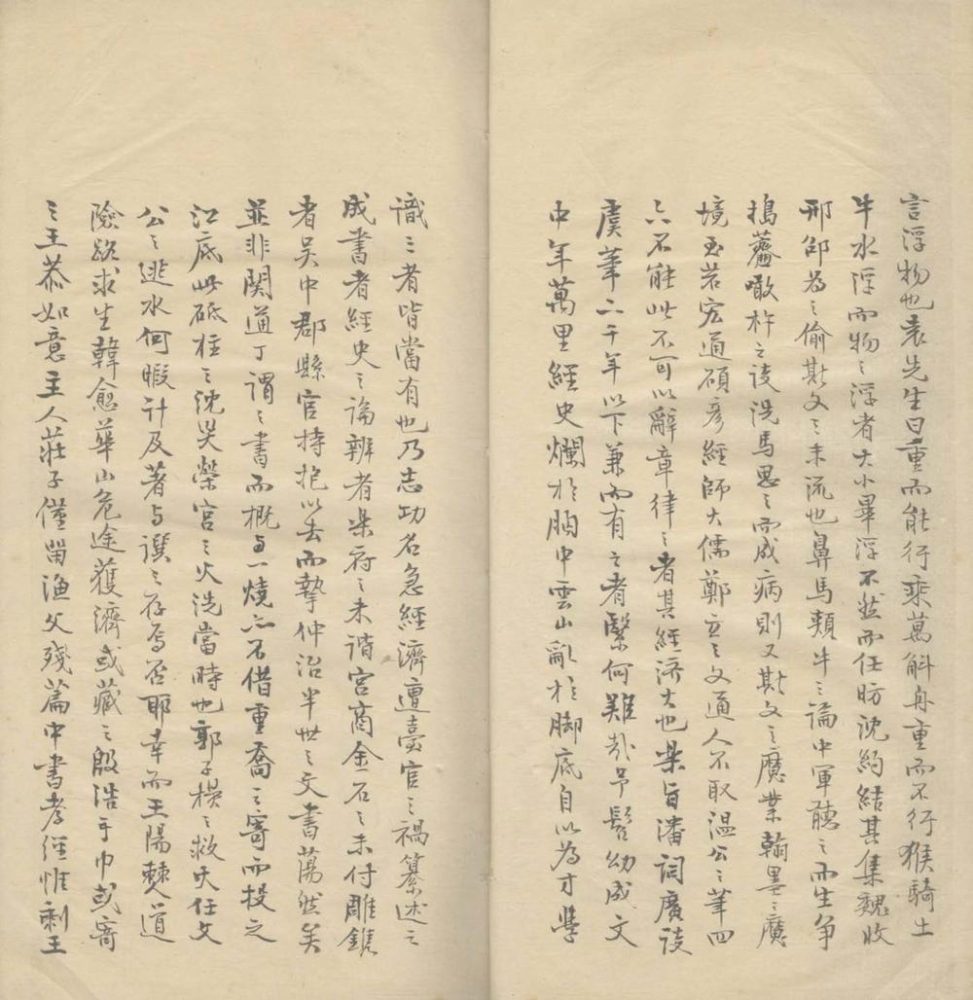 言浮物也袁先生曰重而能行乘萬斛舟重而不行猴騎土
牛水浮而物之浮者大小畢浮不然而任昉沈約結其集魏收
邢邵為之偷斯文之末流也鼻馬類牛之論中軍聽之而生爭
搗虀噉杵之談洗馬思之而成病則又斯文之魔業翰墨之魔
境至若宏通碩彥經師大儒鄭玄之文通人不取溫公之筆四
六不能此不可以辭章律之者其經济大也樂旨潘詞廣談
虞筆二千年以下兼而有之者繄何難哉予髫幼成文
中年萬里經史爛於胸中雲山亂於脚底自以為才學
識三者皆當有也乃志功名急經濟遭臺官之禍纂述之
成書者經史之論辨者樂府之未諧宮商金石之未付雕鐫
者吳中郡縣官持抱以去而摯仲治半世之文書蕩然矣
並非関道丁謂之書而概与一燒亦不借重喬之寄而投之
江底此砥柱之沈災榮宮之火洗當時也郭子横之救火任文
公之逃水何暇計及著与譔之存焉否耶幸而王陽棘道
險欲求生韓愈華山危途獲濟或藏之殷浩手巾或寄
之王恭如意主人莊子僅留漁父殘篇中書孝經惟剩王